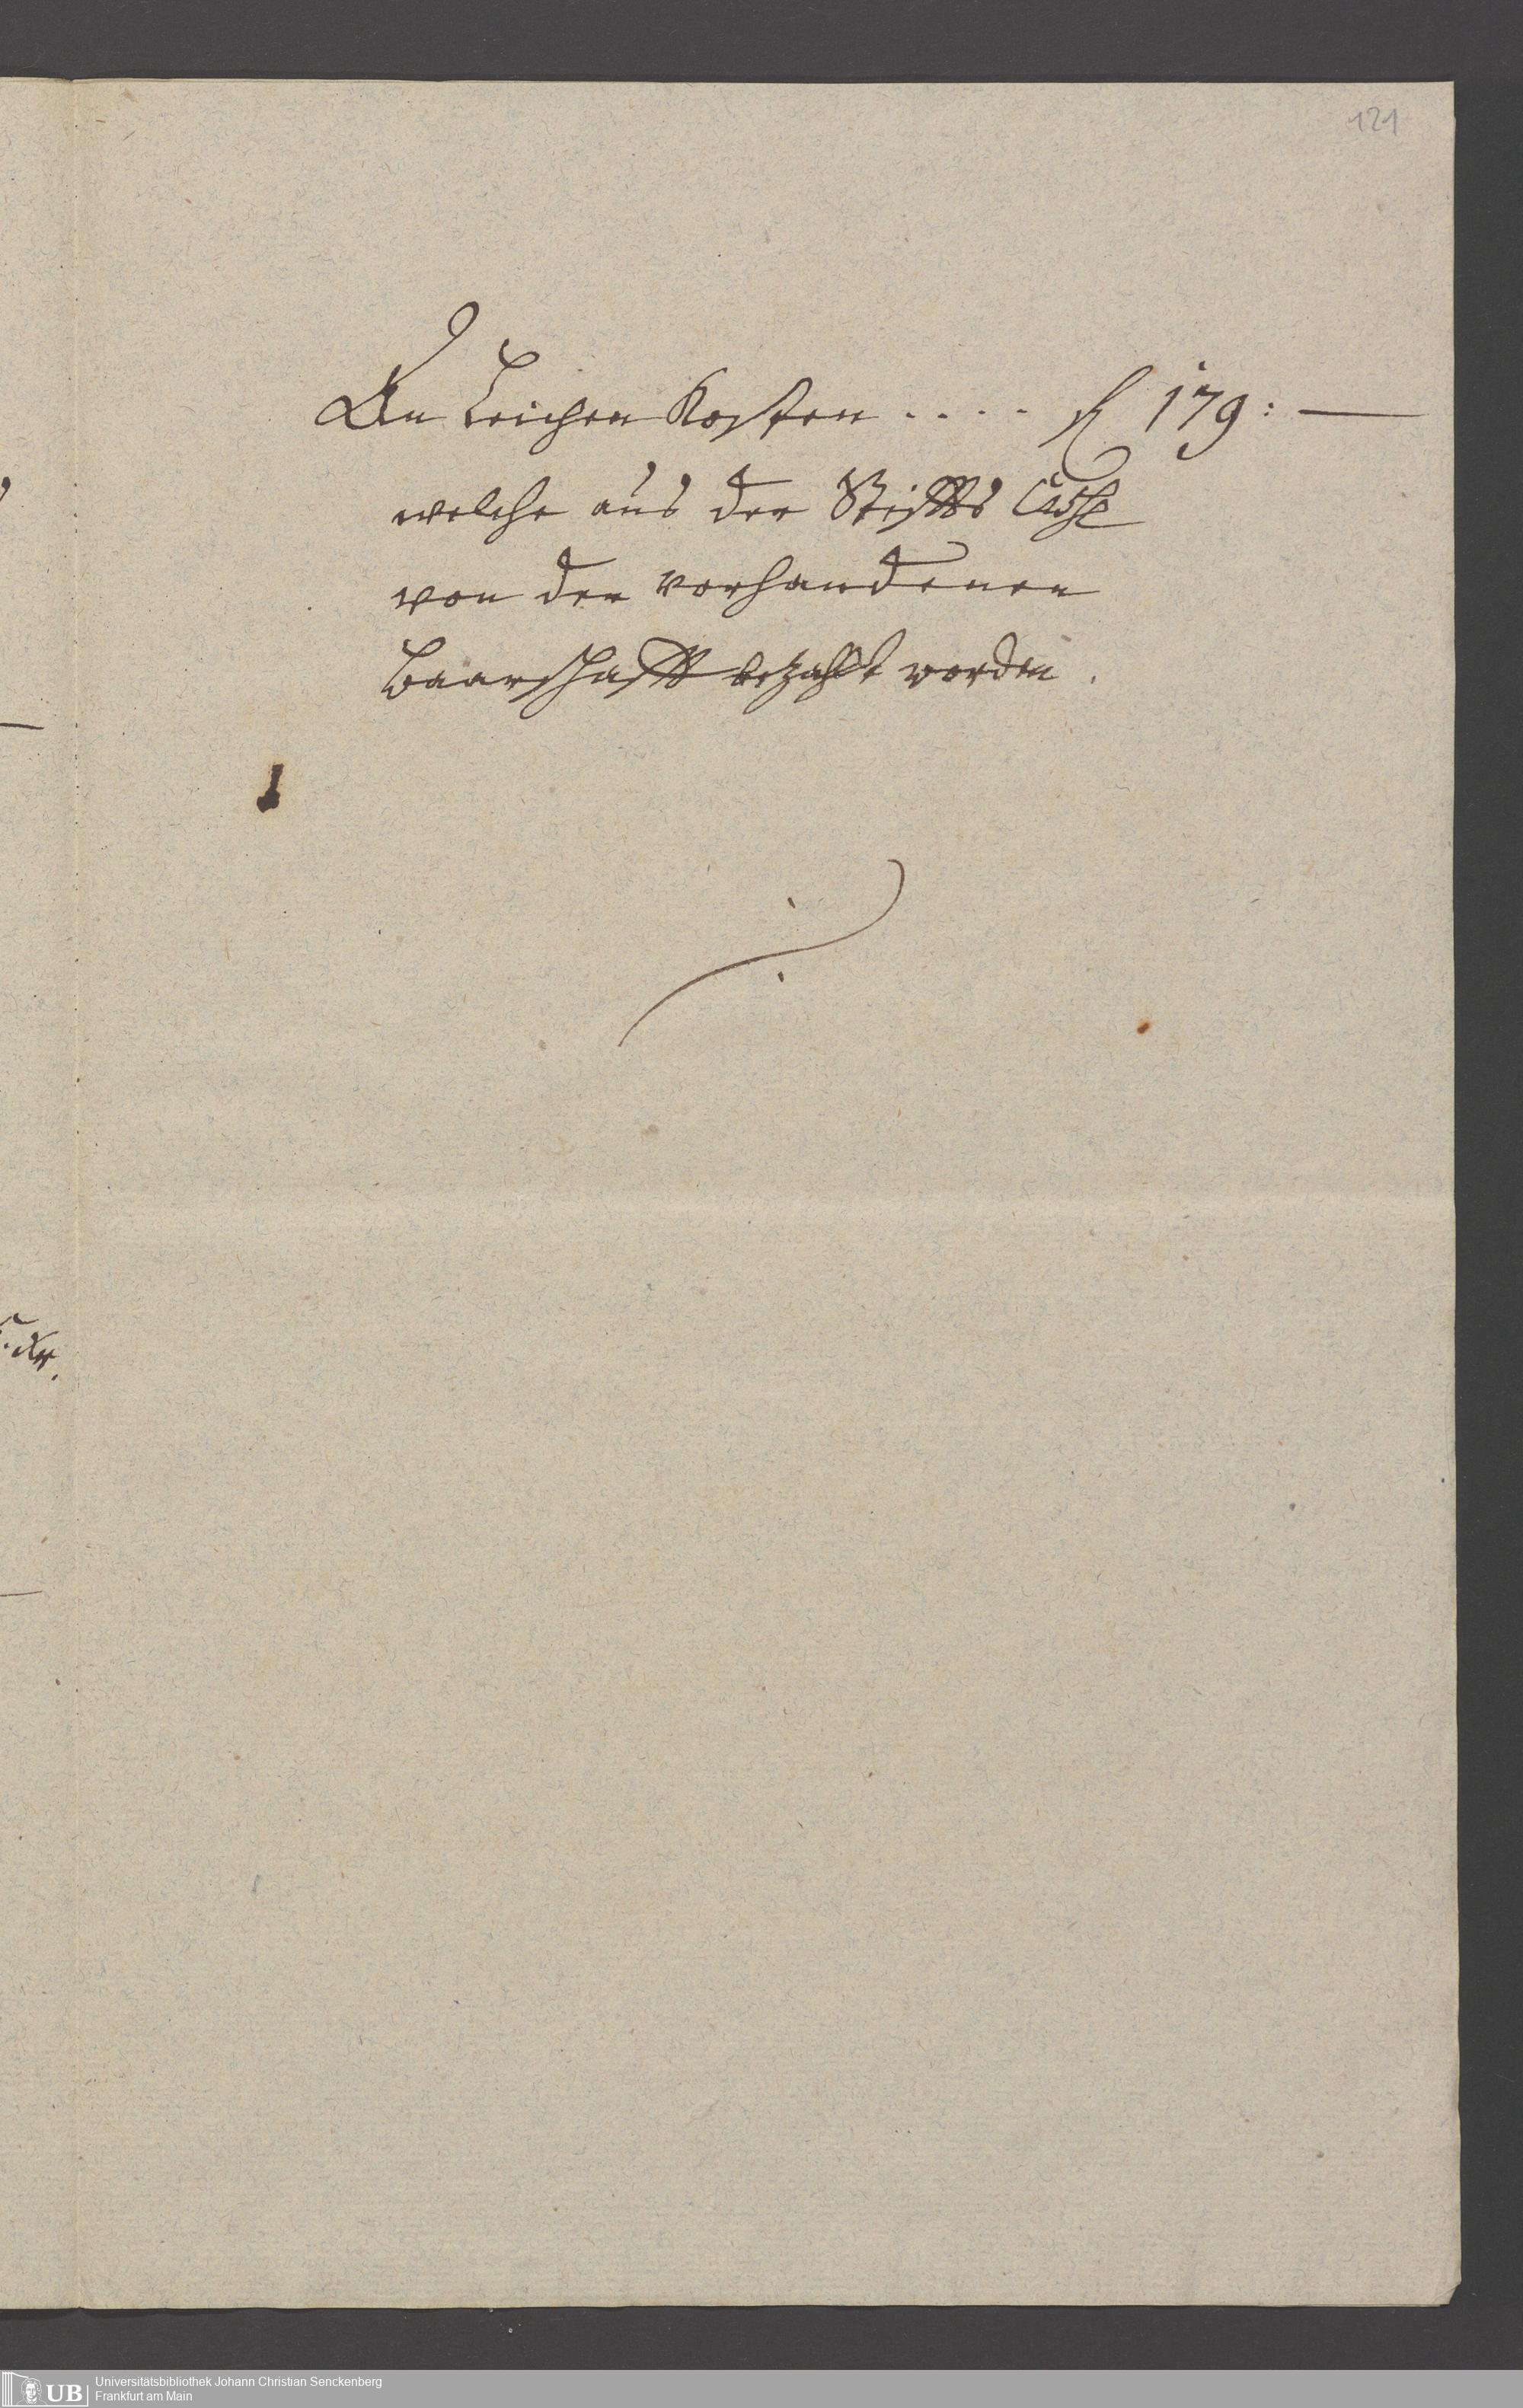 121
An Leichen Kosten .... fl 179: —
welche aus der Stiffts Casse
von der vorhandenen
Baarschafft bezahlt worden.
Kr.
UB Universitätsbibliothek Johann Christian Senckenberg
Frankfurt am Main